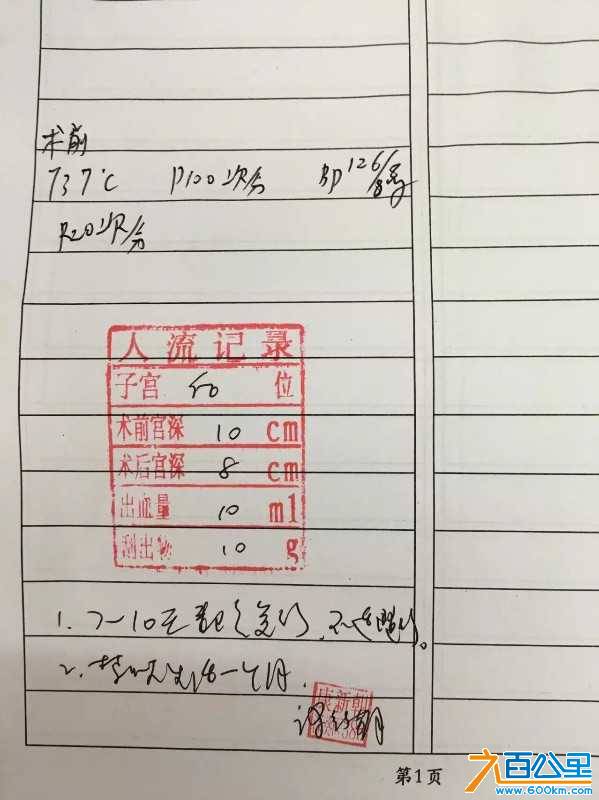 术前
T 37℃ P100次/分 BP 126/
R20次/分
人流记录
子宫 位
术前宫深 10 cm
术后宫深 8 cm
出血量 10 ml
刮出物 10 g
1. 7-10天 复诊, 不适随诊。
2. 禁 生活一个月.
第1页
六百公里
www.600km.com